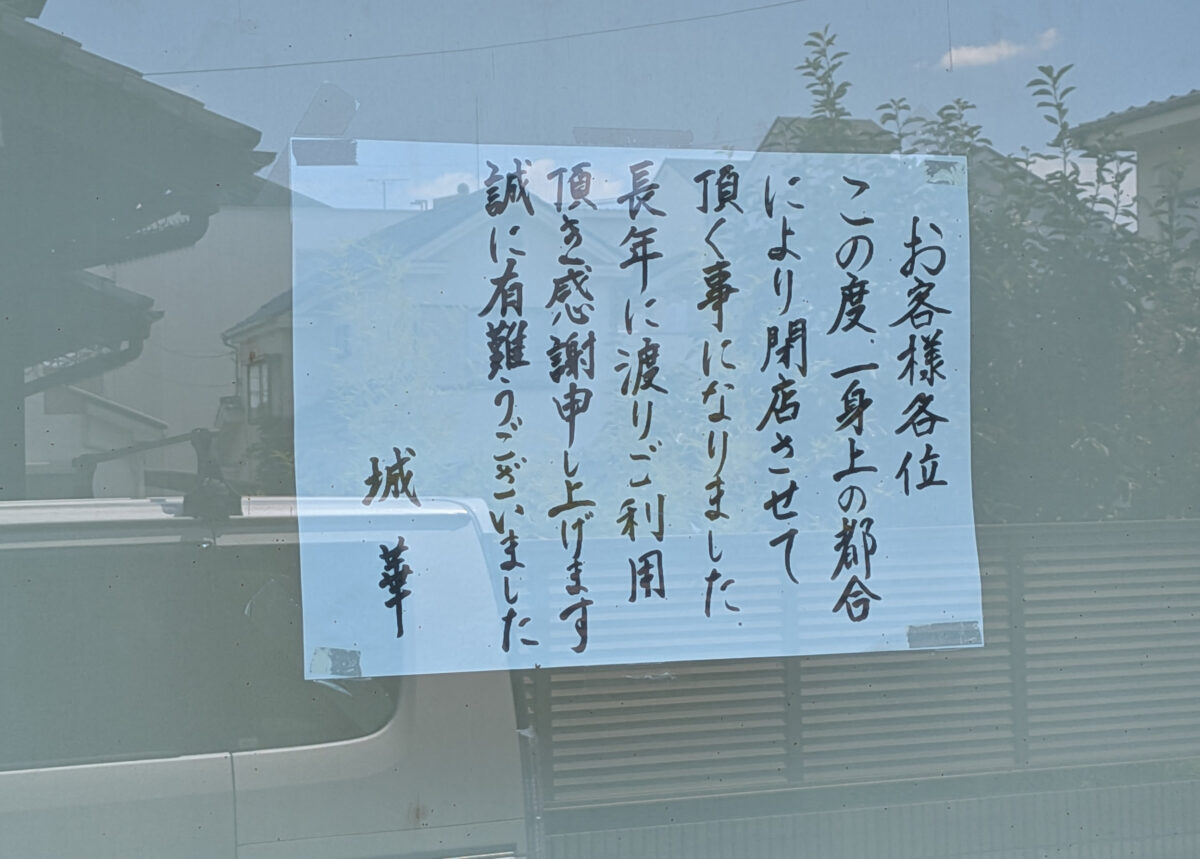 お客様各位
この度、一身上の都合
により閉店させて
頂く事になりました
長年に渡りご利用
頂き感謝申し上げます
誠に有難うございました
城華